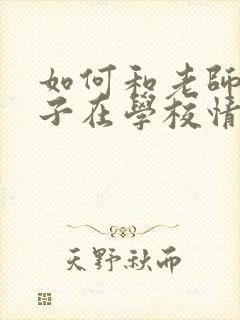 如何和老師
子在學校情
天野秋而